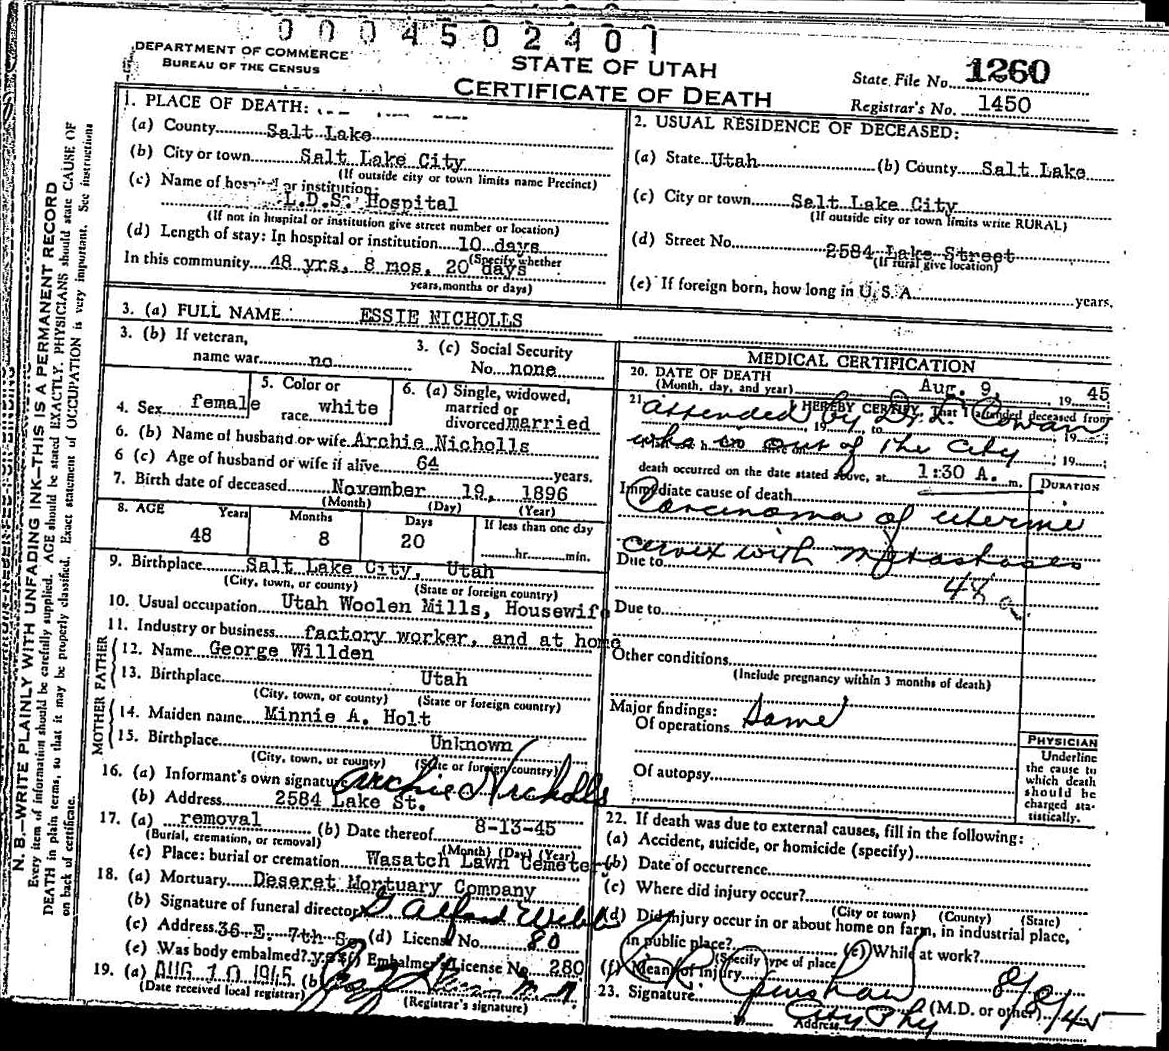 0004502401
DEPARTMENT OF COMMERCE
BUREAU OF THE CENSUS
STATE OF UTAH
CERTIFICATE OF DEATH
State File No. 1260
Registrar's No. 1450
N. B.—WRITE PLAINLY WITH UNFADING INK—THIS IS A PERMANENT RECORD
Every item of information should be carefully supplied. AGE should be stated EXACTLY. PHYSICIANS should state CAUSE OF
DEATH in plain terms, so that it may be properly classified. Exact statement of OCCUPATION is very important. See instructions
on back of certificate.
1. PLACE OF DEATH:
(a) County Salt Lake
(b) City or town Salt Lake City
(If outside city or town limits name Precinct)
(c) Name of hospital or institution:
L.D.S. Hospital
(If not in hospital or institution give street number or location)
(d) Length of stay: In hospital or institution 10 days
(Specify whether
In this community 48 yrs, 8 mos, 20 days
years, months or days)
2. USUAL RESIDENCE OF DECEASED:
(a) State Utah (b) County Salt Lake
(c) City or town Salt Lake City
(If outside city or town limits write RURAL)
(d) Street No. 2584 Lake Street
(If rural give location)
(e) If foreign born, how long in U. S. A. years.
3. (a) FULL NAME ESSIE NICHOLLS
3. (b) If veteran,
name war no
3. (c) Social Security
No. none
4. Sex female
5. Color or
race white
6. (a) Single, widowed,
married or
divorced married
6. (b) Name of husband or wife Archie Nicholls
6 (c) Age of husband or wife if alive 64 years.
7. Birth date of deceased November 19, 1896
(Month) (Day) (Year)
8. AGE Years Months Days If less than one day
48 8 20 hr. min.
9. Birthplace Salt Lake City, Utah
(City, town, or county) (State or foreign country)
10. Usual occupation Utah Woolen Mills, Housewife
11. Industry or business factory worker, and at home
FATHER
12. Name George Willden
13. Birthplace Utah
(City, town, or county) (State or foreign country)
MOTHER
14. Maiden name Minnie A. Holt
15. Birthplace Unknown
(City, town, or county) (State or foreign country)
16. (a) Informant's own signature Archie Nicholls
(b) Address 2584 Lake St.
17. (a) removal (b) Date thereof 8-13-45
(Burial, cremation, or removal) (Month) (Day) (Year)
(c) Place: burial or cremation Wasatch Lawn Cemetery
18. (a) Mortuary Deseret Mortuary Company
(b) Signature of funeral director
(c) Address 36 E. 7th So. (d) License No. 80
(e) Was body embalmed? yes (f) Embalmer License No. 280
19. (a) AUG 10 1945 (b)
(Date received local registrar) (Registrar's signature)
MEDICAL CERTIFICATION
20. DATE OF DEATH
(Month, day, and year) Aug. 9, 1945
21. I HEREBY CERTIFY, That I attended deceased from
attended by Dr. L. Cowan
19 to 19
who is out of the city
, 19
death occurred on the date stated above, at 1:30 A. m.
DURATION
Immediate cause of death
Carcinoma of uterine
cervix with metastases
Due to
48 a
Due to
Other conditions
(Include pregnancy within 3 months of death)
Major findings:
Of operations Same
Of autopsy
PHYSICIAN
Underline
the cause to
which death
should be
charged sta-
tistically.
22. If death was due to external causes, fill in the following:
(a) Accident, suicide, or homicide (specify)
(b) Date of occurrence
(c) Where did injury occur?
(City or town) (County) (State)
(d) Did injury occur in or about home on farm, in industrial place,
in public place? (e) While at work?
(Specify type of place)
(f) Means of Injury
8/8/45
23. Signature (M.D. or other)
Address City Phy